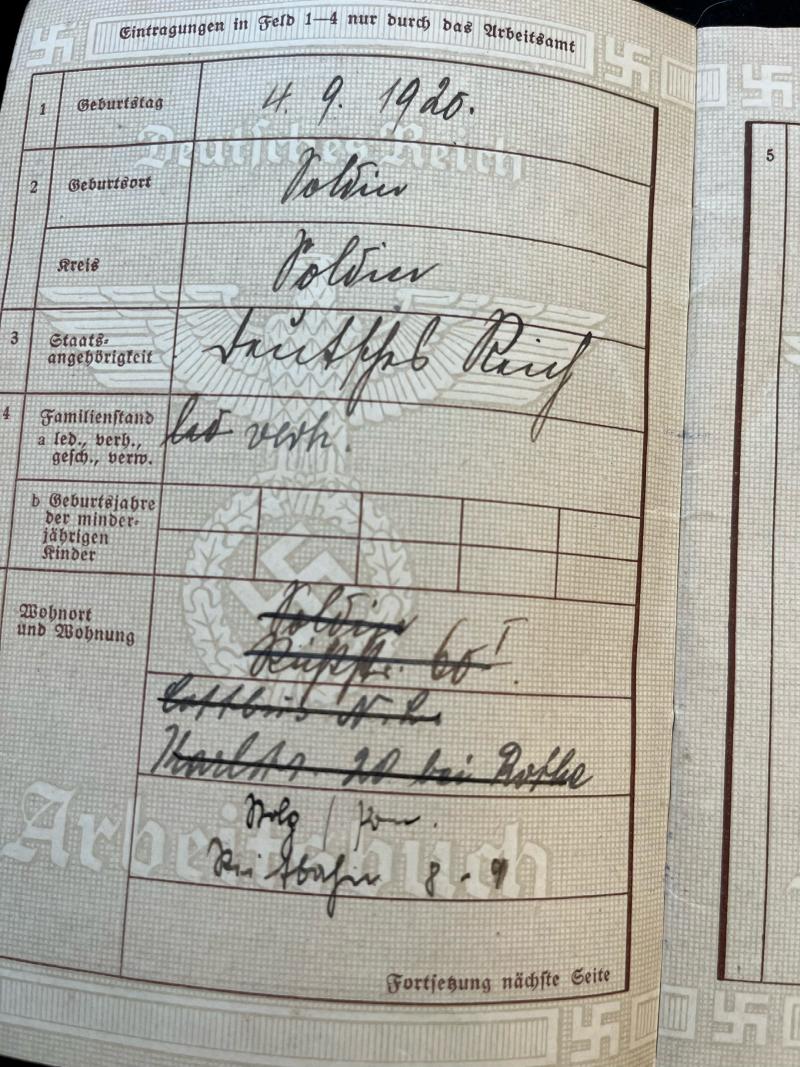 Eintragungen in Feld 1—4 nur durch das Arbeitsamt
1 Geburtstag 4. 9. 1920.
Deutsches Reich
2 Geburtsort Soldin
Kreis Soldin
3 Staats-
angehörigkeit Deutsches Reich
4 Familienstand
a led., verh., led verh.
gesch., verw.
b Geburtsjahre
der minder-
jährigen
Kinder
Wohnort
und Wohnung
Soldin
60 I
Cottbus N.L.
Karlstr. 20 bei
Stolp / Pom.
Reitbahn 8-9
Arbeitsbuch
Fortsetzung nächste Seite
5